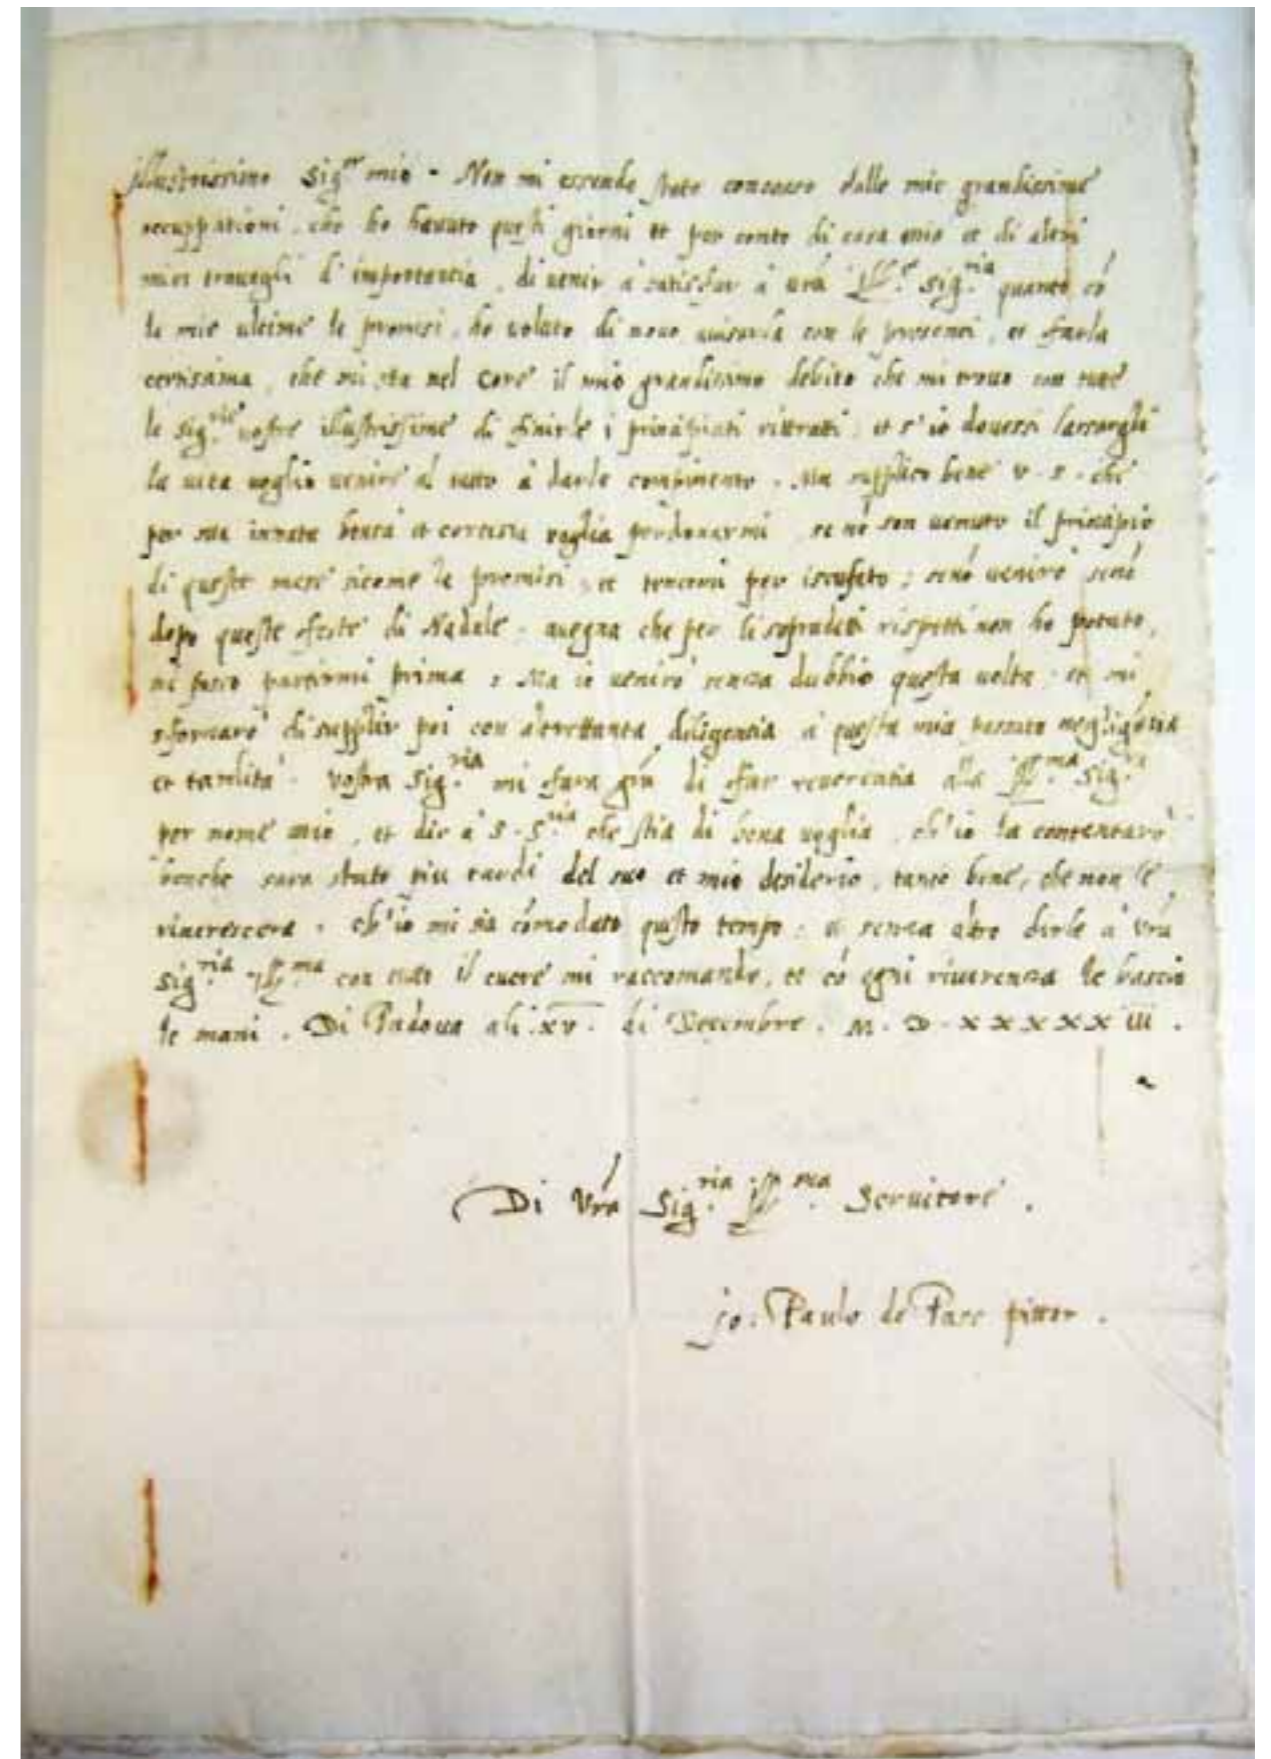 illustrissimo Sig.or mio. Non mi essendo stato concesso dalle mie grandissime
occuppationi, che ho havuto questi giorni et per conto di casa mia et di altri
miei travagli d'importantia, di venir à satisfar à vrà Ill.e Sig.ria quanto cō
le mie ultime le promisi, ho voluto di novo avisarla con le presenti, et farla
certissima, che mi sta nel core il mio grandissimo debito che mi trovo con tutte
le Sig.rie vostre illustrissime di finirle i principiati rittratti, et s'io dovessi lassargli
la vita voglio venire al tutto à darle compimento. Ma supplico bene v. s. che
per sua innata bontà et cortesia voglia perdonarmi se nō son venuto il principio
di questo mese sicome le promisi, et tenermi per iscusato, se nō venirò senō
dopo queste feste di Nadale. avegna che per li sopradetti rispetti non ho potuto,
ni posso partirmi prima: Ma io venirò senza dubbio questa volta. et mi
sforzarò di supplir poi con altrettanta diligentia à questa mia passata negligētia
et tardità. Vostra Sig.ria mi farà grā di far reverentia alla Ill.ma Sig.ra
per nome mio, et dir à S. S.ria che stia di bona voglia, ch'io la contentarò
benche sarà stato piu tardi del suo et mio desiderio, tanto bene, che non le
rincrescera. ch'io mi sia cōmodato questo tempo: et senza altro dirle à Vrà
Sig.ria Ill.ma con tutto il cuore mi raccomando, et cō ogni riverenza le bascio
le mani. Di Padova ali .XV. di Decembre. M. D. XXXXXIII.
Di Vrà Sig.ria Ill.ma Servitore.
jo. Paulo de Pace pittor.